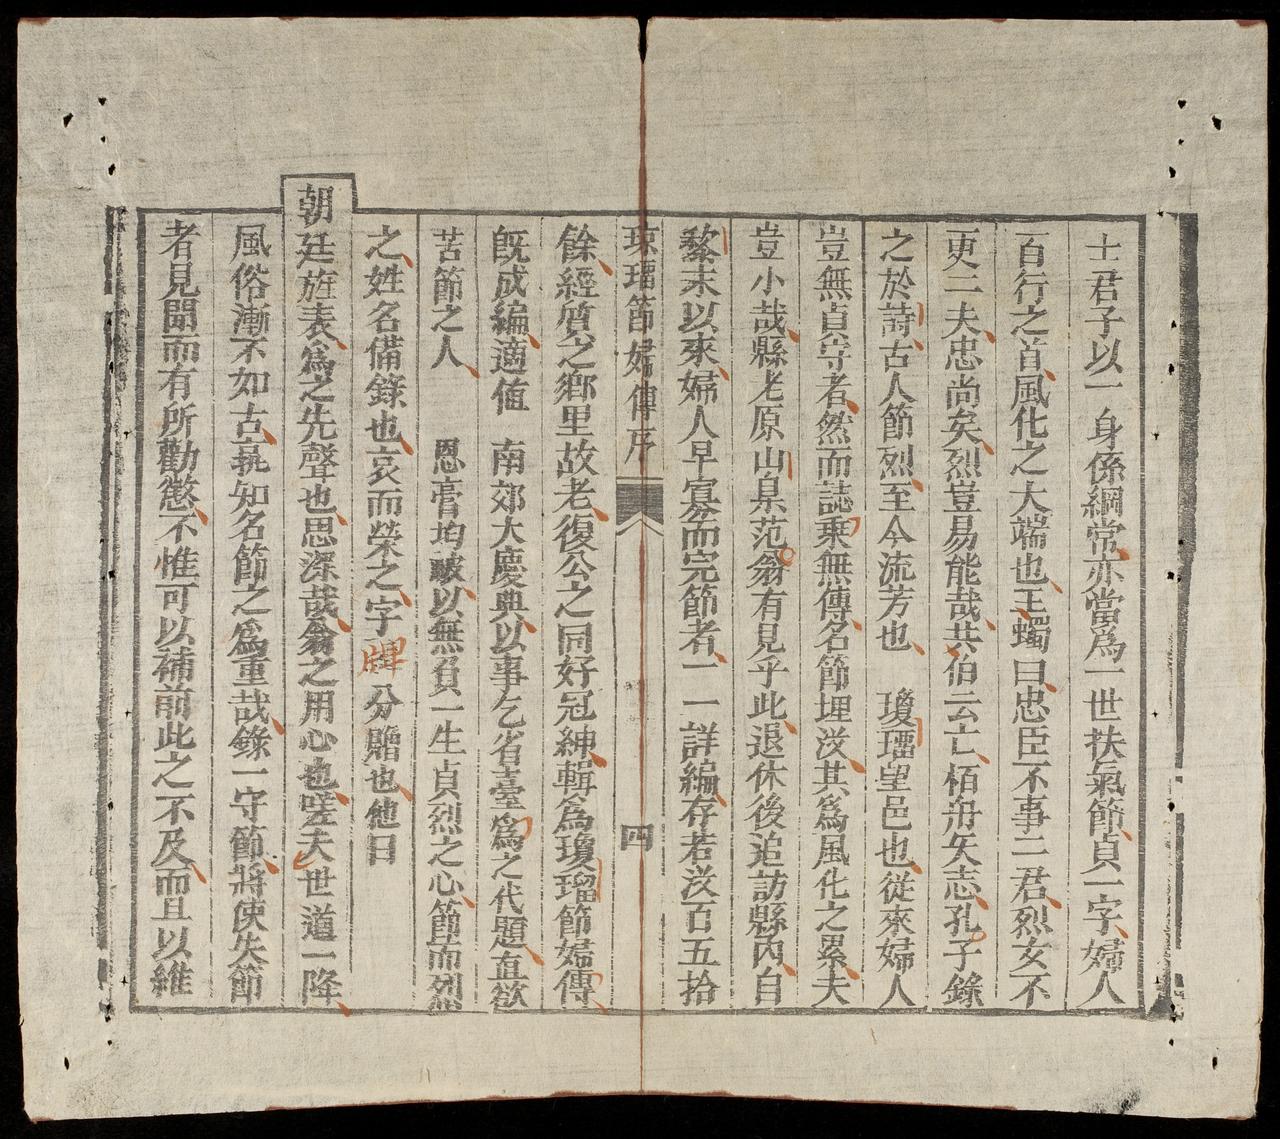 士君子以一身係綱常亦當爲一世扶氣節貞一字婦人
百行之首風化之大端也王蠋曰忠臣不事二君烈女不
更二夫忠尚矣烈豈易能哉共伯云亡栢舟矢志孔子錄
之於詩古人節烈至今流芳也 瓊瑠望邑也從來婦人
豈無貞守者然而誌乘無傳名節埋没其爲風化之累夫
豈小哉縣老原山臬范翁有見乎此退休後追訪縣內自
黎末以來婦人早寡而完節者一一詳編存若没百五拾
琼瑠節婦傳序 四
餘經質之鄉里故老復公之同好冠紳輯爲瓊瑠節婦傳
既成編適值 南郊大慶典以事乞省臺爲之代題直欲
苦節之人 恩膏均皷以無負一生貞烈之心節而烈
之姓名備錄也哀而榮之字牌分贈也他日
朝廷旌表爲之先聲也思深哉翁之用心也嗟夫世道一降
風俗漸不如古孰知名節之爲重哉錄一守節將使失節
者見聞而有所勸懲不惟可以補前此之不及而且以維